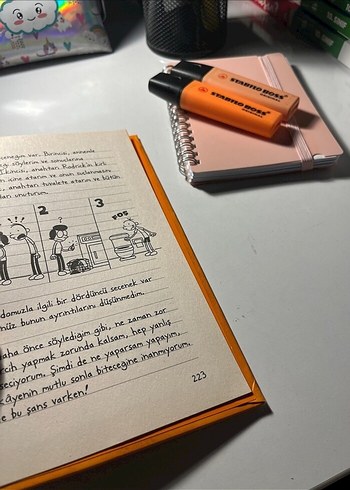 STABILO BOSS
STABILO BOSS
seçeneğim var. Birincisi, annenle
söylerim ve sonuçlarına
İkincisi, anahtarı Rodrick'in kirli
için atarım ve onun suçlanmasını
anahtarı tuvalete atarım ve bütün
unuturum.
2
3
!!!
?
FOŞ
domuzla ilgili bir dördüncü seçenek var
bunun ayrıntılarını düşünmedim.
daha önce söylediğim gibi, ne zaman zor
yapmak zorunda kalsam, hep yanlış
seçiyorum. Şimdi de ne yaparsam yapayım,
kâyenin mutlu sonla biteceğine inanmıyorum.
e bu şans varken!
223